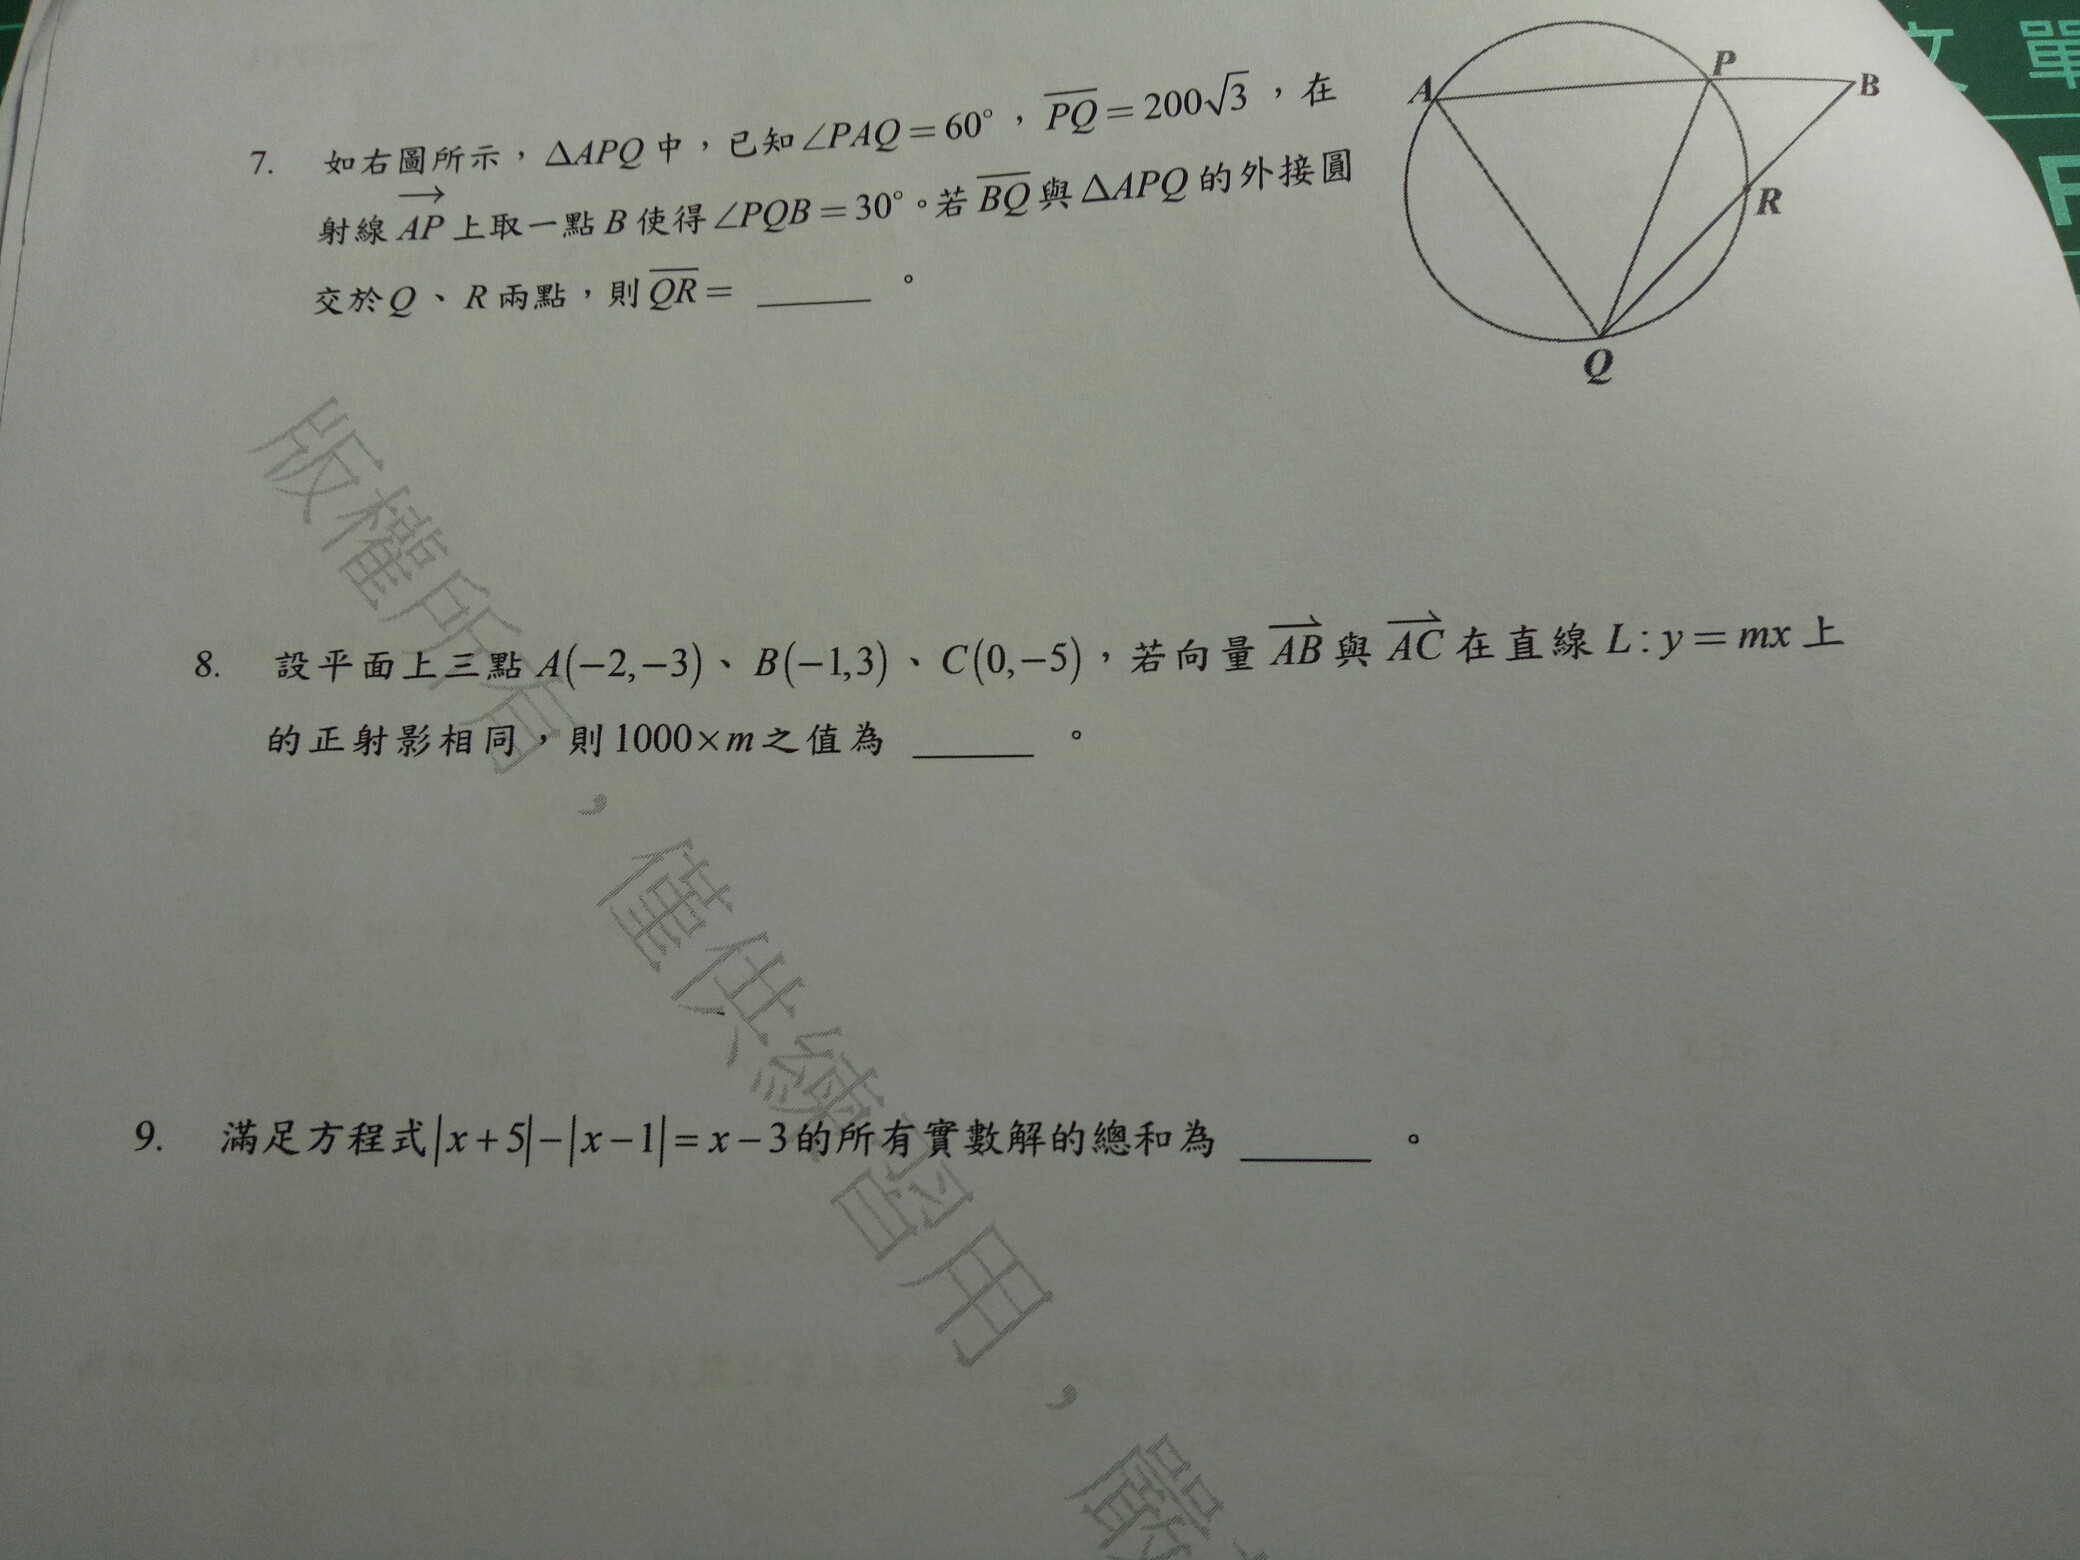 單
A
P
B
R
Q
7. 如右圖所示，ΔAPQ 中，已知∠PAQ = 60°，PQ = 200√3，在
射線 AP 上取一點 B 使得∠PQB = 30°。若 BQ 與 ΔAPQ 的外接圓
交於Q、R 兩點，則 QR = ______ 。
8. 設平面上三點 A(−2,−3)、B(−1,3)、C(0,−5)，若向量 AB 與 AC 在直線 L: y = mx 上
的正射影相同，則1000×m之值為 ______ 。
9. 滿足方程式|x+5|−|x−1|= x−3的所有實數解的總和為 ______ 。
版權所有，僅供練習用，嚴